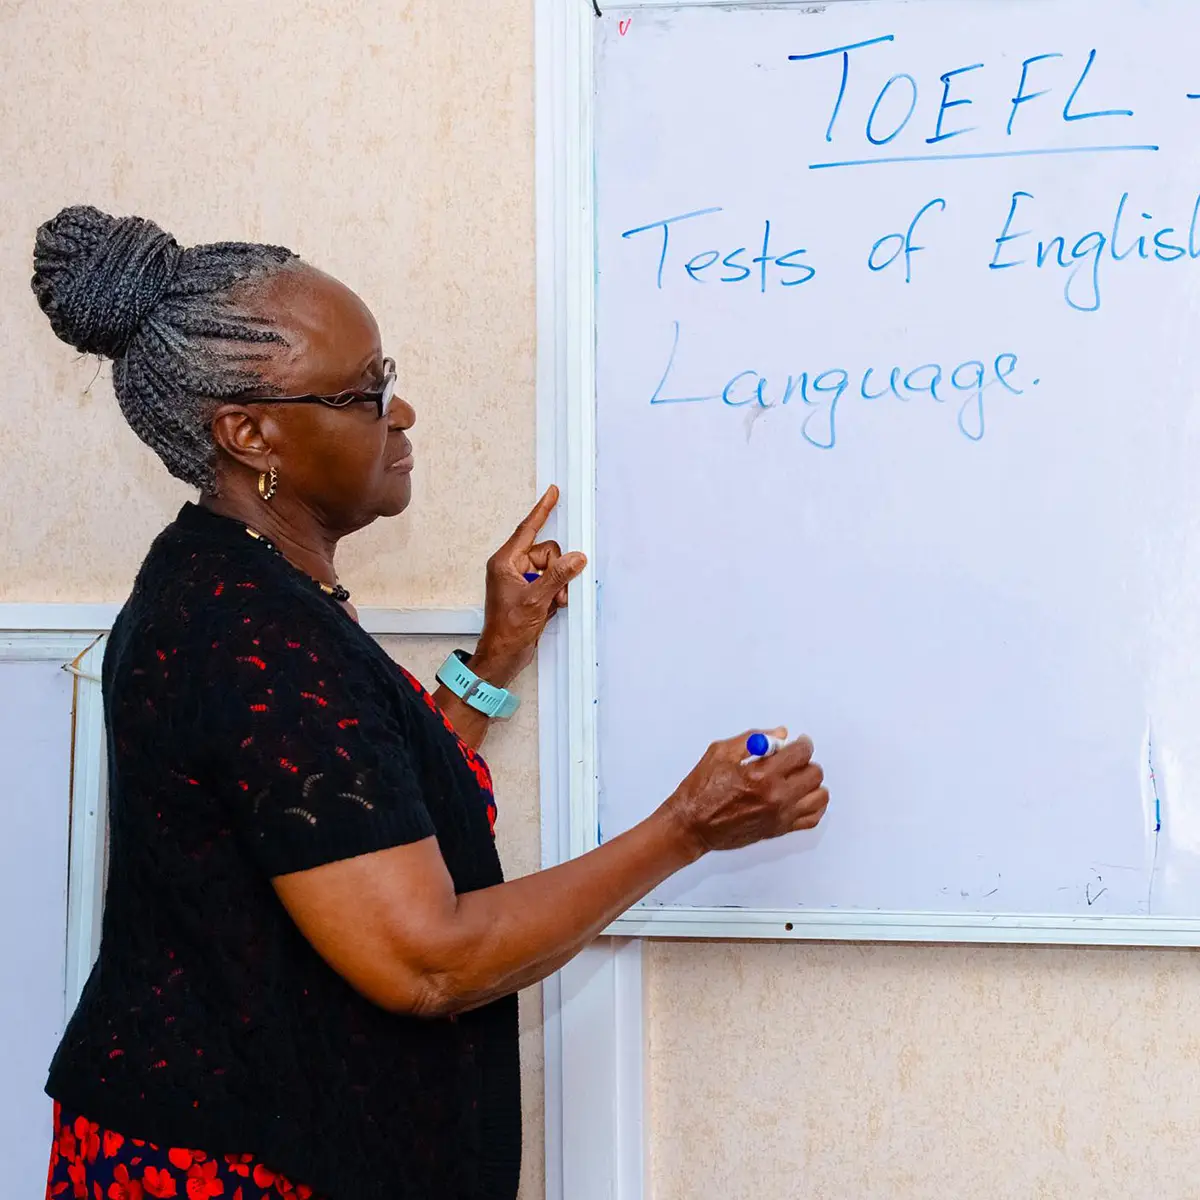 TOEFL -
Tests of English
Language.